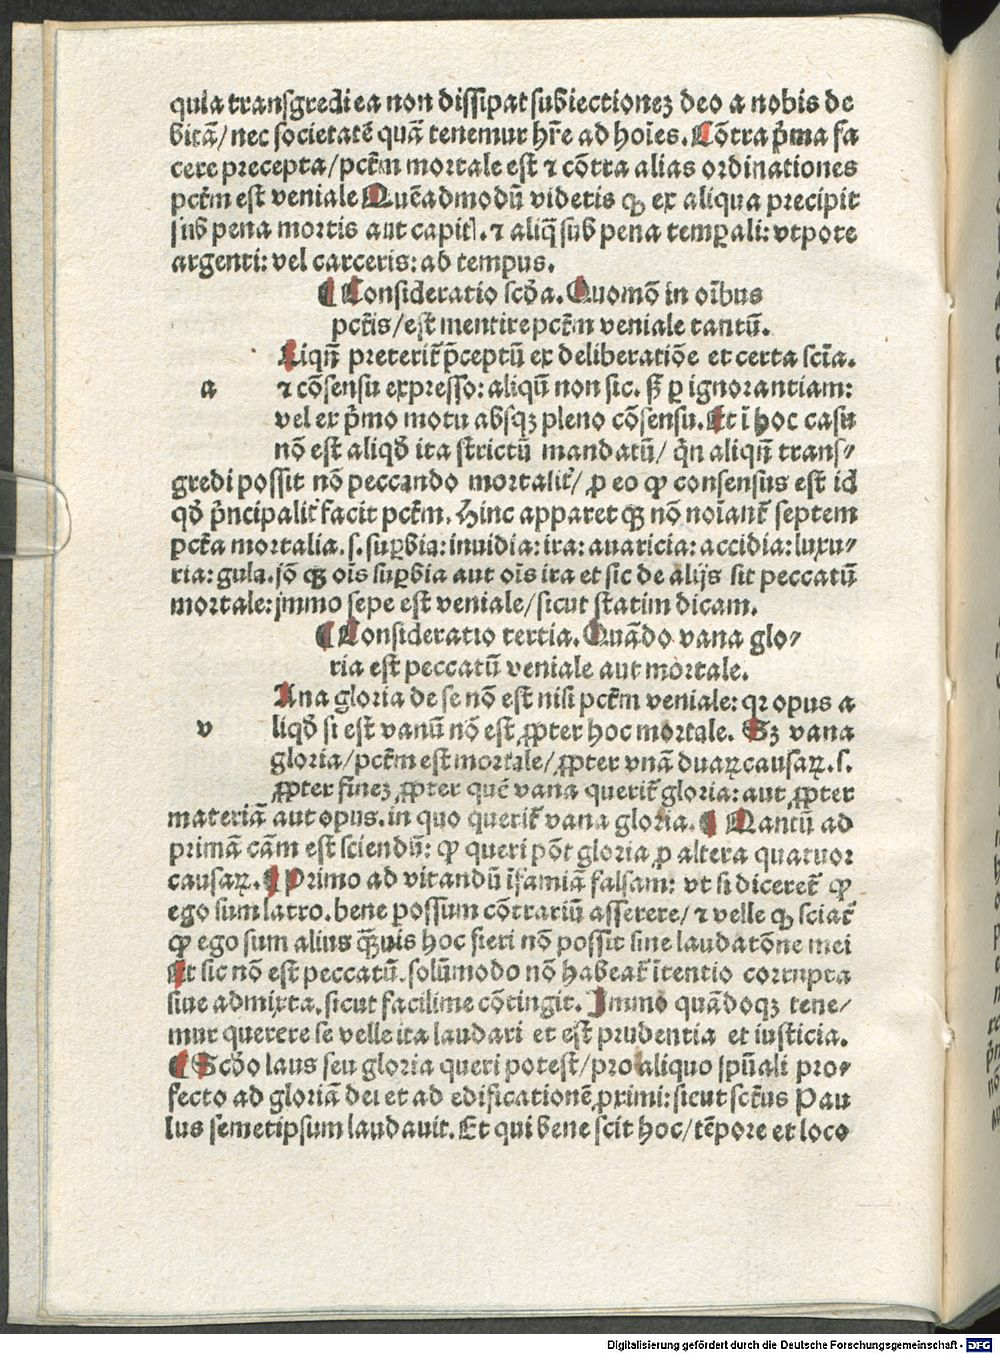 qula transgredi ea non dissipat subiectionez deo a nobis de
bitā/ nec societatē quā tenemur hr̄e ad hoīes. Cōtra p̄ma fa
cere precepta/ pctm̄ mortale est ⁊ cōtra alias ordinationes
pctm̄ est veniale Quēadmodū videtis ꝙ ex aliqua precipit
sub pena mortis aut capitꝭ. ⁊ aliq̄ sub pena temꝑali: vtpote
argenti: vel carceris: ad tempus.
¶ Consideratio scd̄a. Quomō in oībus
pctīs/ est mentire pctm̄ veniale tantū.
Liqn̄ preterit̄ p̄ceptū ex deliberatiōe et certa scīa.
a ⁊ cōsensu expresso: aliqn̄ non sic. sꝫ ꝑ ignorantiam:
vel ex p̄mo motu absqꝫ pleno cōsensu. Et ī hoc casu
nō est aliqd̄ ita strictū mandatū/ qn̄ aliqn̄ trans⸗
gredi possit nō peccando mortalit̄/ ꝓ eo ꝙ consensus est id
qd̄ p̄ncipalit̄ facit pctm̄. Hinc apparet ꝙ nō noīant̄ septem
pctā mortalia. s. suꝑbia: inuidia: ira: auaricia: accidia: luxu⸗
ria: gula. iō ꝙ oīs suꝑbia aut oīs ira et sic de alijs sit peccatū
mortale: jmmo sepe est veniale/ sicut statim dicam.
¶ Consideratio tertia. Quādo vana glo⸗
ria est peccatū veniale aut mortale.
Ana gloria de se nō est nisi pctm̄ veniale: qr opus a
v liqd̄ si est vanū nō est ꝓpter hoc mortale. Sꝫ vana
gloria/ pctm̄ est mortale/ ꝓpter vnā duaꝝ causaꝝ. s.
ꝓpter finez ꝓpter quē vana querit̄ gloria: aut ꝓpter
materiā aut opus. in quo querit̄ vana gloria. ¶ Quantū ad
primā cām est sciendū: ꝙ queri pōt gloria ꝓ altera quatuor
causaꝝ. ¶ Primo ad vitandū īfamiā falsam: vt si diceret̄ ꝙ
ego sum latro. bene possum cōtrariū asserere/ ⁊ velle ꝙ sciat̄
ꝙ ego sum alius q̄uis hoc fieri nō possit sine laudatōne mei
Et sic nō est peccatū. solūmodo nō habeat̄ ītentio corrupta
siue admixta. sicut facilime cōtingit. Immo quādoqꝫ tene⸗
mur querere se velle ita laudari et est prudentia et iusticia.
¶ Scd̄o laus seu gloria queri potest/ pro aliquo spūali pro⸗
fecto ad gloriā dei et ad edificationē ꝓximi: sicut sctūs Pau
lus semetipsum laudauit. Et qui bene scit hoc/ tēpore et loco
Digitalisierung gefördert durch die Deutsche Forschungsgemeinschaft - DFG